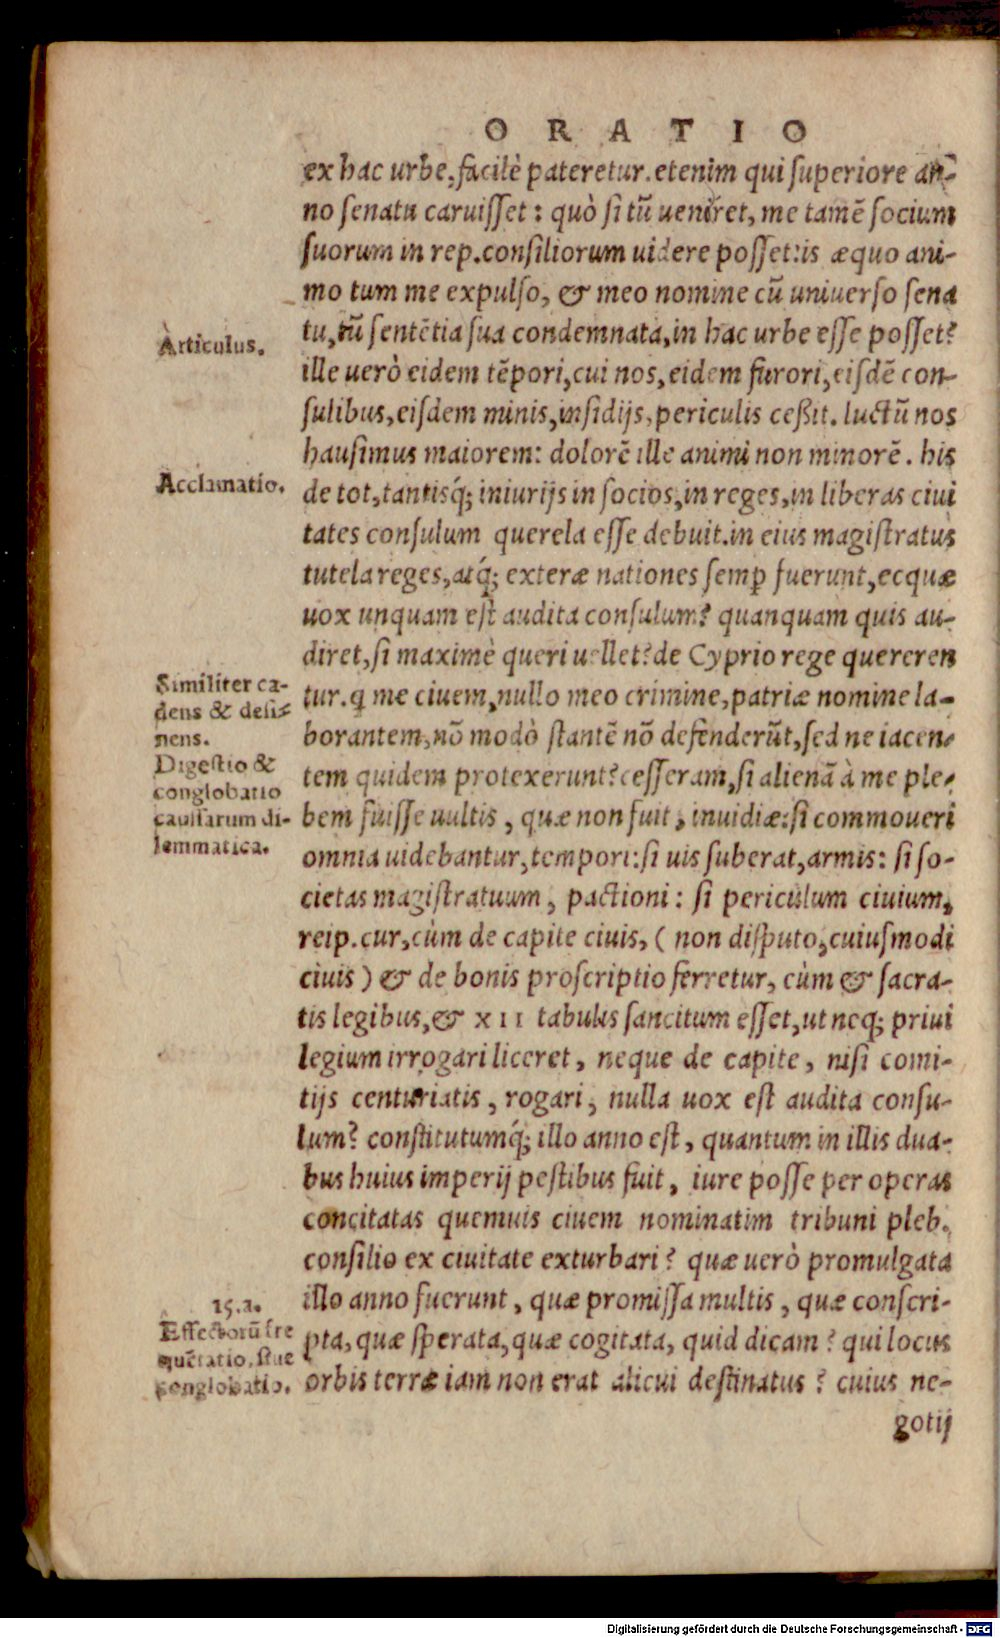 ORATIO
ex hac urbe, facilè pateretur. etenim qui superiore an-
no senatu caruisset: quò si tũ ueniret, me tamẽ socium
suorum in rep. consiliorum uidere posset: is æquo ani-
mo tum me expulso, & meo nomine cũ uniuerso sena
tu, tũ sentẽtia sua condemnata, in hac urbe esse posset?
Articulus.
ille uerò eidem tẽpori, cui nos, eidem furori, eisdẽ con-
sulibus, eisdem minis, insidijs, periculis ceßit. luctũ nos
hausimus maiorem: dolorẽ ille animi non minorẽ. his
Acclamatio.
de tot, tantisq́; iniurijs in socios, in reges, in liberas ciui
tates consulum querela esse debuit. in eius magistratus
tutela reges, atq́; exteræ nationes semp̱ fuerunt, ecquæ
uox unquam est audita consulum? quanquam quis au-
diret, si maximè queri uellet? de Cyprio rege quereren
Similiter ca-
dens & desi-
nens.
tur. q̱ me ciuem, nullo meo crimine, patriæ nomine la-
borantem, nõ modò stantẽ nõ defenderũt, sed ne iacen-
Digestio &
conglobatio
caussarum di-
lemmatica.
tem quidem protexerunt? cesseram, si alienã à me ple-
bem fuisse uultis, quæ non fuit, inuidiæ: si commoueri
omnia uidebantur, tempori: si uis suberat, armis: si so-
cietas magistratuum, pactioni: si periculum ciuium,
reip. cur, cùm de capite ciuis, (non disputo, cuiusmodi
ciuis) & de bonis proscriptio ferretur, cùm & sacra-
tis legibus, & XII tabulis sancitum esset, ut neq; priui
legium irrogari liceret, neque de capite, nisi comi-
tijs centuriatis, rogari, nulla uox est audita consu-
lum? constitutumq́; illo anno est, quantum in illis dua-
bus huius imperij pestibus fuit, iure posse per operas
concitatas quemuis ciuem nominatim tribuni pleb.
consilio ex ciuitate exturbari? quæ uerò promulgata
15.a.
Effectorũ fre
quẽtatio, siue
conglobatio.
illo anno fuerunt, quæ promissa multis, quæ conscri-
pta, quæ sperata, quæ cogitata, quid dicam? qui locus
orbis terræ iam non erat alicui destinatus? cuius ne-
gotij
Digitalisierung gefördert durch die Deutsche Forschungsgemeinschaft - DFG